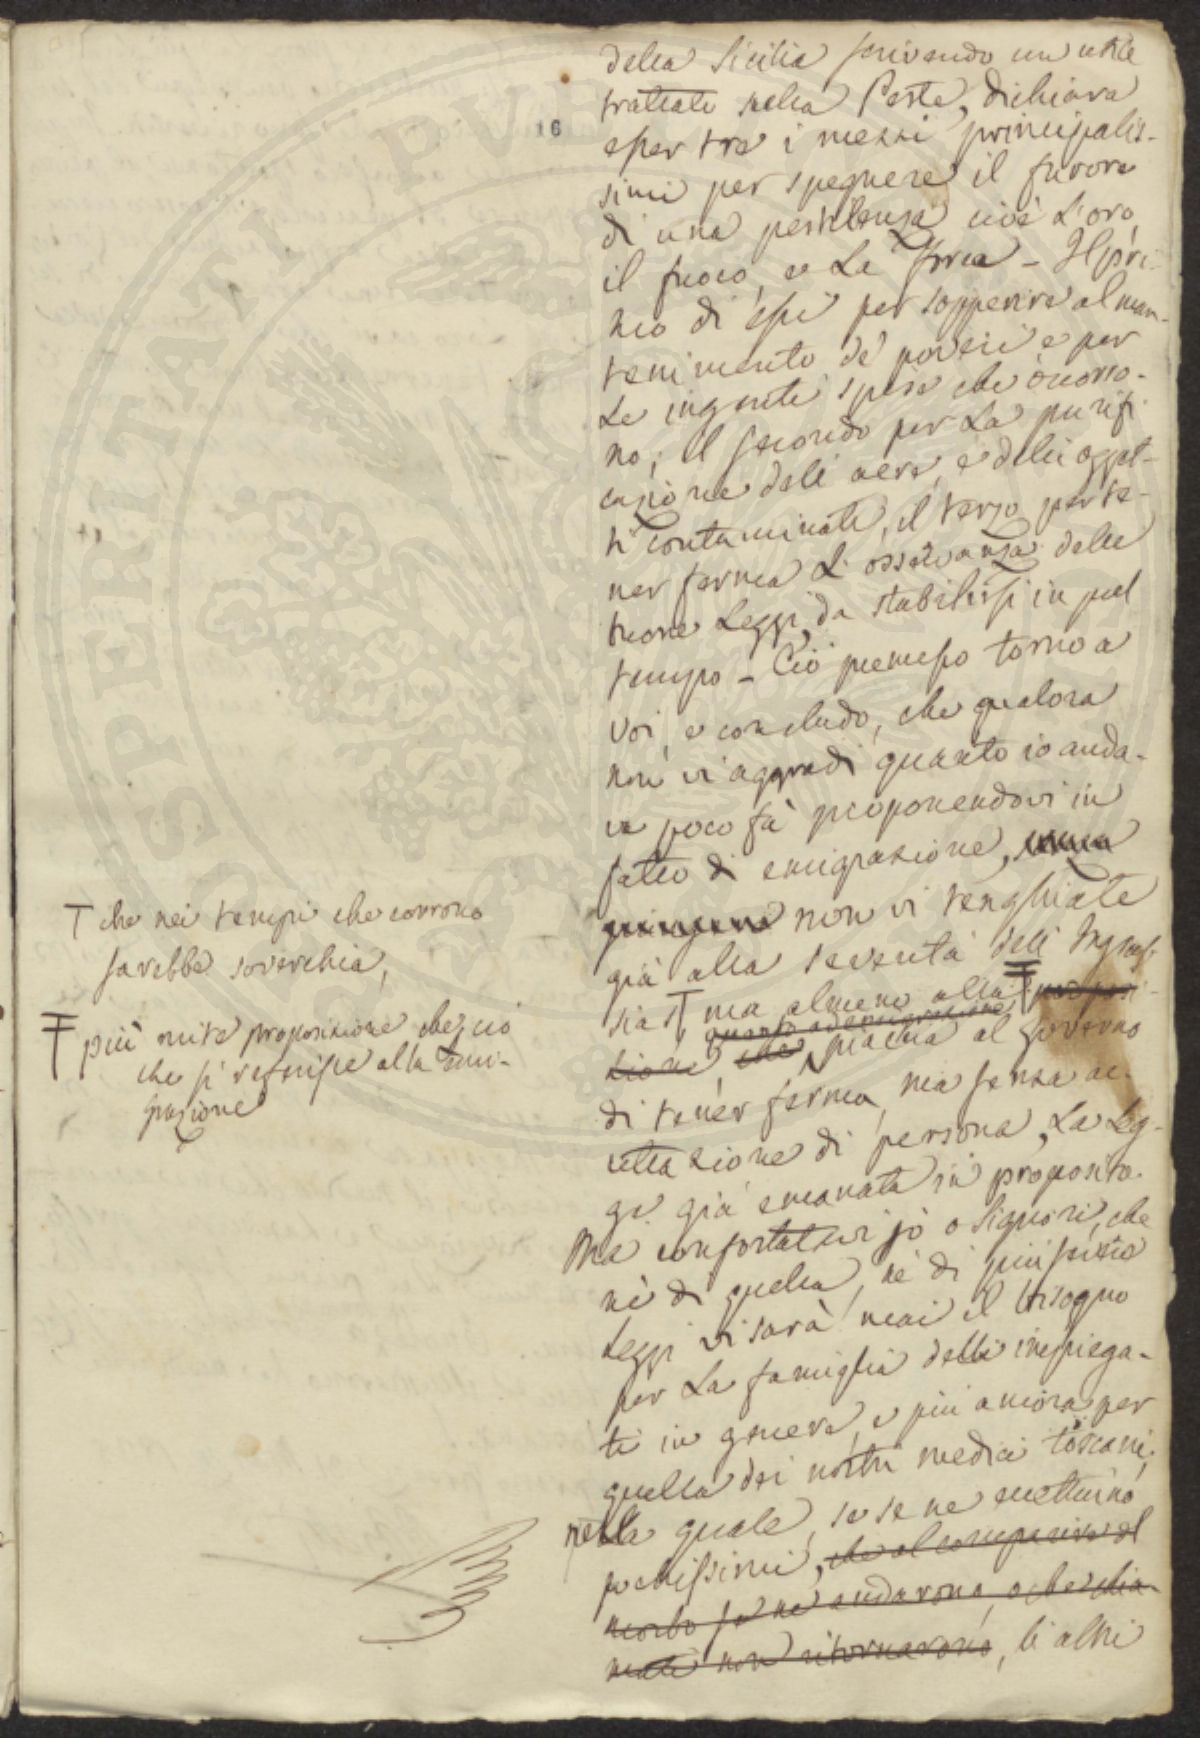 16
della Sicilia scrivendo un utile
trattato sulla Peste, dichiara
esser tre i mezzi principalis-
simi per spegnere il furore
di una pestilenza cioè L'oro,
il fuoco, e La forca - Il pri-
mo di essi per sopperire al man-
tenimento de' poveri e per
Le ingenti spese che occorro-
no; il secondo per La purifi
cazione dell aere, e delli ogget-
ti contaminati, il terzo per te-
ner ferma L'osservanza delle
buone Leggi da stabilirsi in quel
tempo - Ciò premesso torno a
voi, e concludo, che qualora
non vi aggradi quanto io anda-
va poco fà proponendovi in
fatto di emigrazione,
non vi tenghiate
già alla severità dell' Ingras-
sia T ma almeno alla Ŧ proposi-
zione che quanto ad emigrazione piaccia al Governo
di tener ferma, ma senza ac-
cettazione di persona, La Leg-
ge già emanata in proposito.
Ma confortatevi jò o Signori, che
nè di quella, nè di più severe
Leggi vi sarà mai il bisogno
per La famiglia delli impiega-
ti in genere, e più ancora per
quella dei nostri medici toscani,
nella quale, se se ne eccettuino
pochissimi, che al comparire del
morbo se ne andarono, o che chia-
mati non ritornarono, li altri
T che nei tempi che corrono
sarebbe soverchia,
Ŧ più mite proposizione che ciò
che si referisce alla emi-
grazione